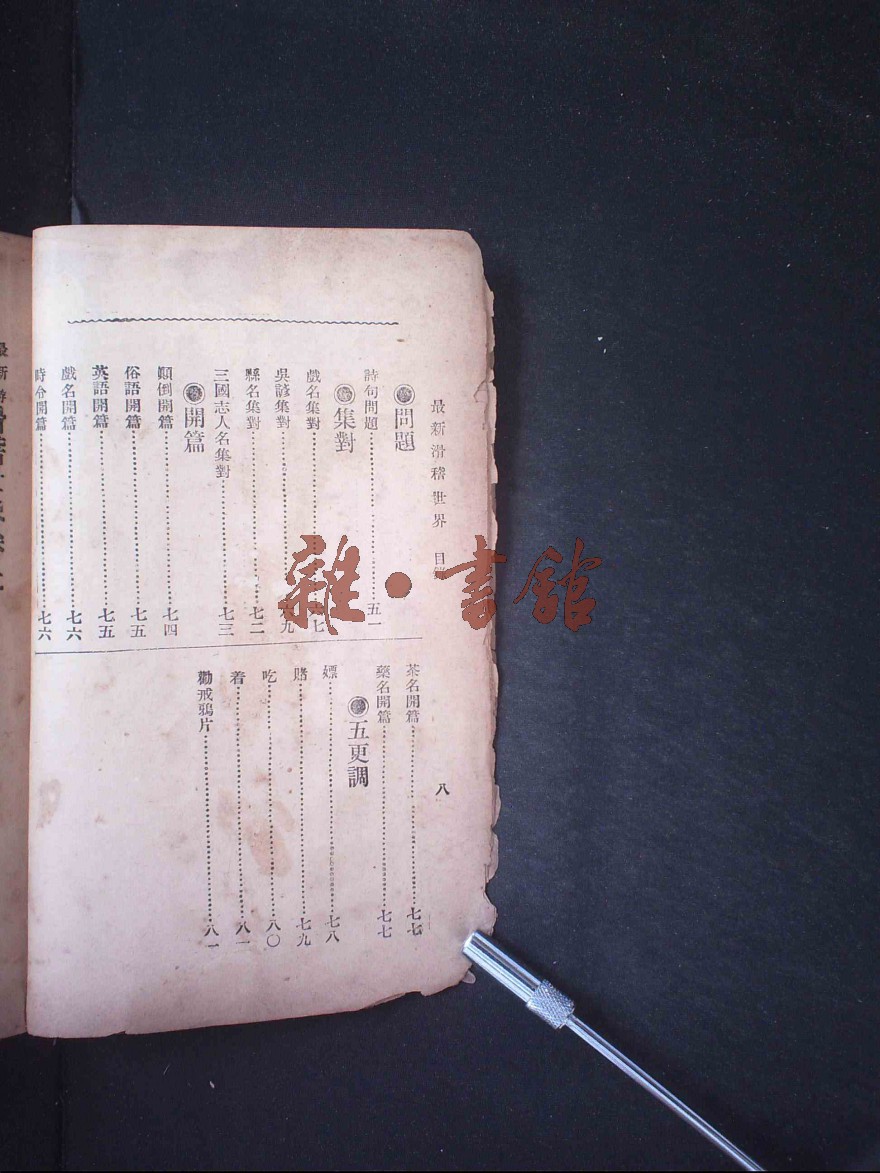 最新滑稽世界 目
八
問題
詩句問題…五一
集對
戲名集對…七
吳諺集對…九
縣名集對…七二
三國志人名集對…七三
開篇
顛倒開篇…七四
俗語開篇…七五
英語開篇…七五
戲名開篇…七六
時令開篇…七六
茶名開篇…七七
藥名開篇…七七
五更調
嫖…七八
賭…七九
吃…八〇
着…八一
勸戒鴉片…八一
最新
雜·書館